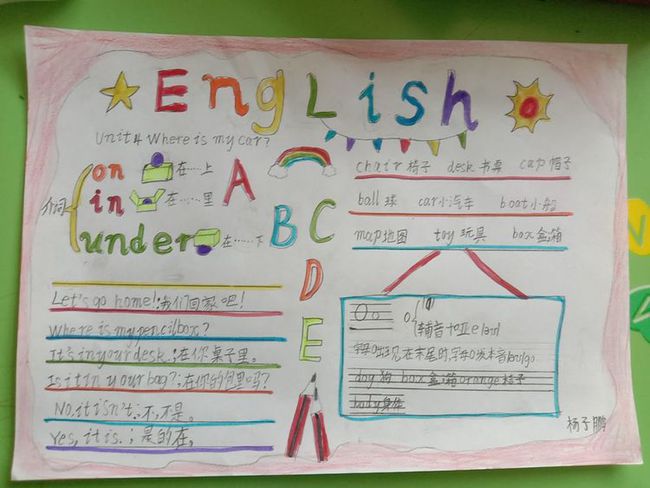 English
Unit 4 Where is my car?
介词
on 在……上
in 在……里
under 在……下
A
B
C
D
E
chair 椅子 desk 书桌 cap 帽子
ball 球 car小汽车 boat小船
map地图 toy 玩具 box 盒;箱
Let's go home!;我们回家吧!
Where is my pencil box?
It's in your desk.;在你桌子里。
Is it in your bag?;在你的包里吗?
No,it isn't.;不,不是。
Yes, it is.;是的在。
Oo
辅音
字母 出现在末尾的字母o发本音
dog 狗 box 盒;箱 orange 桔子
body身体
杨子鹏